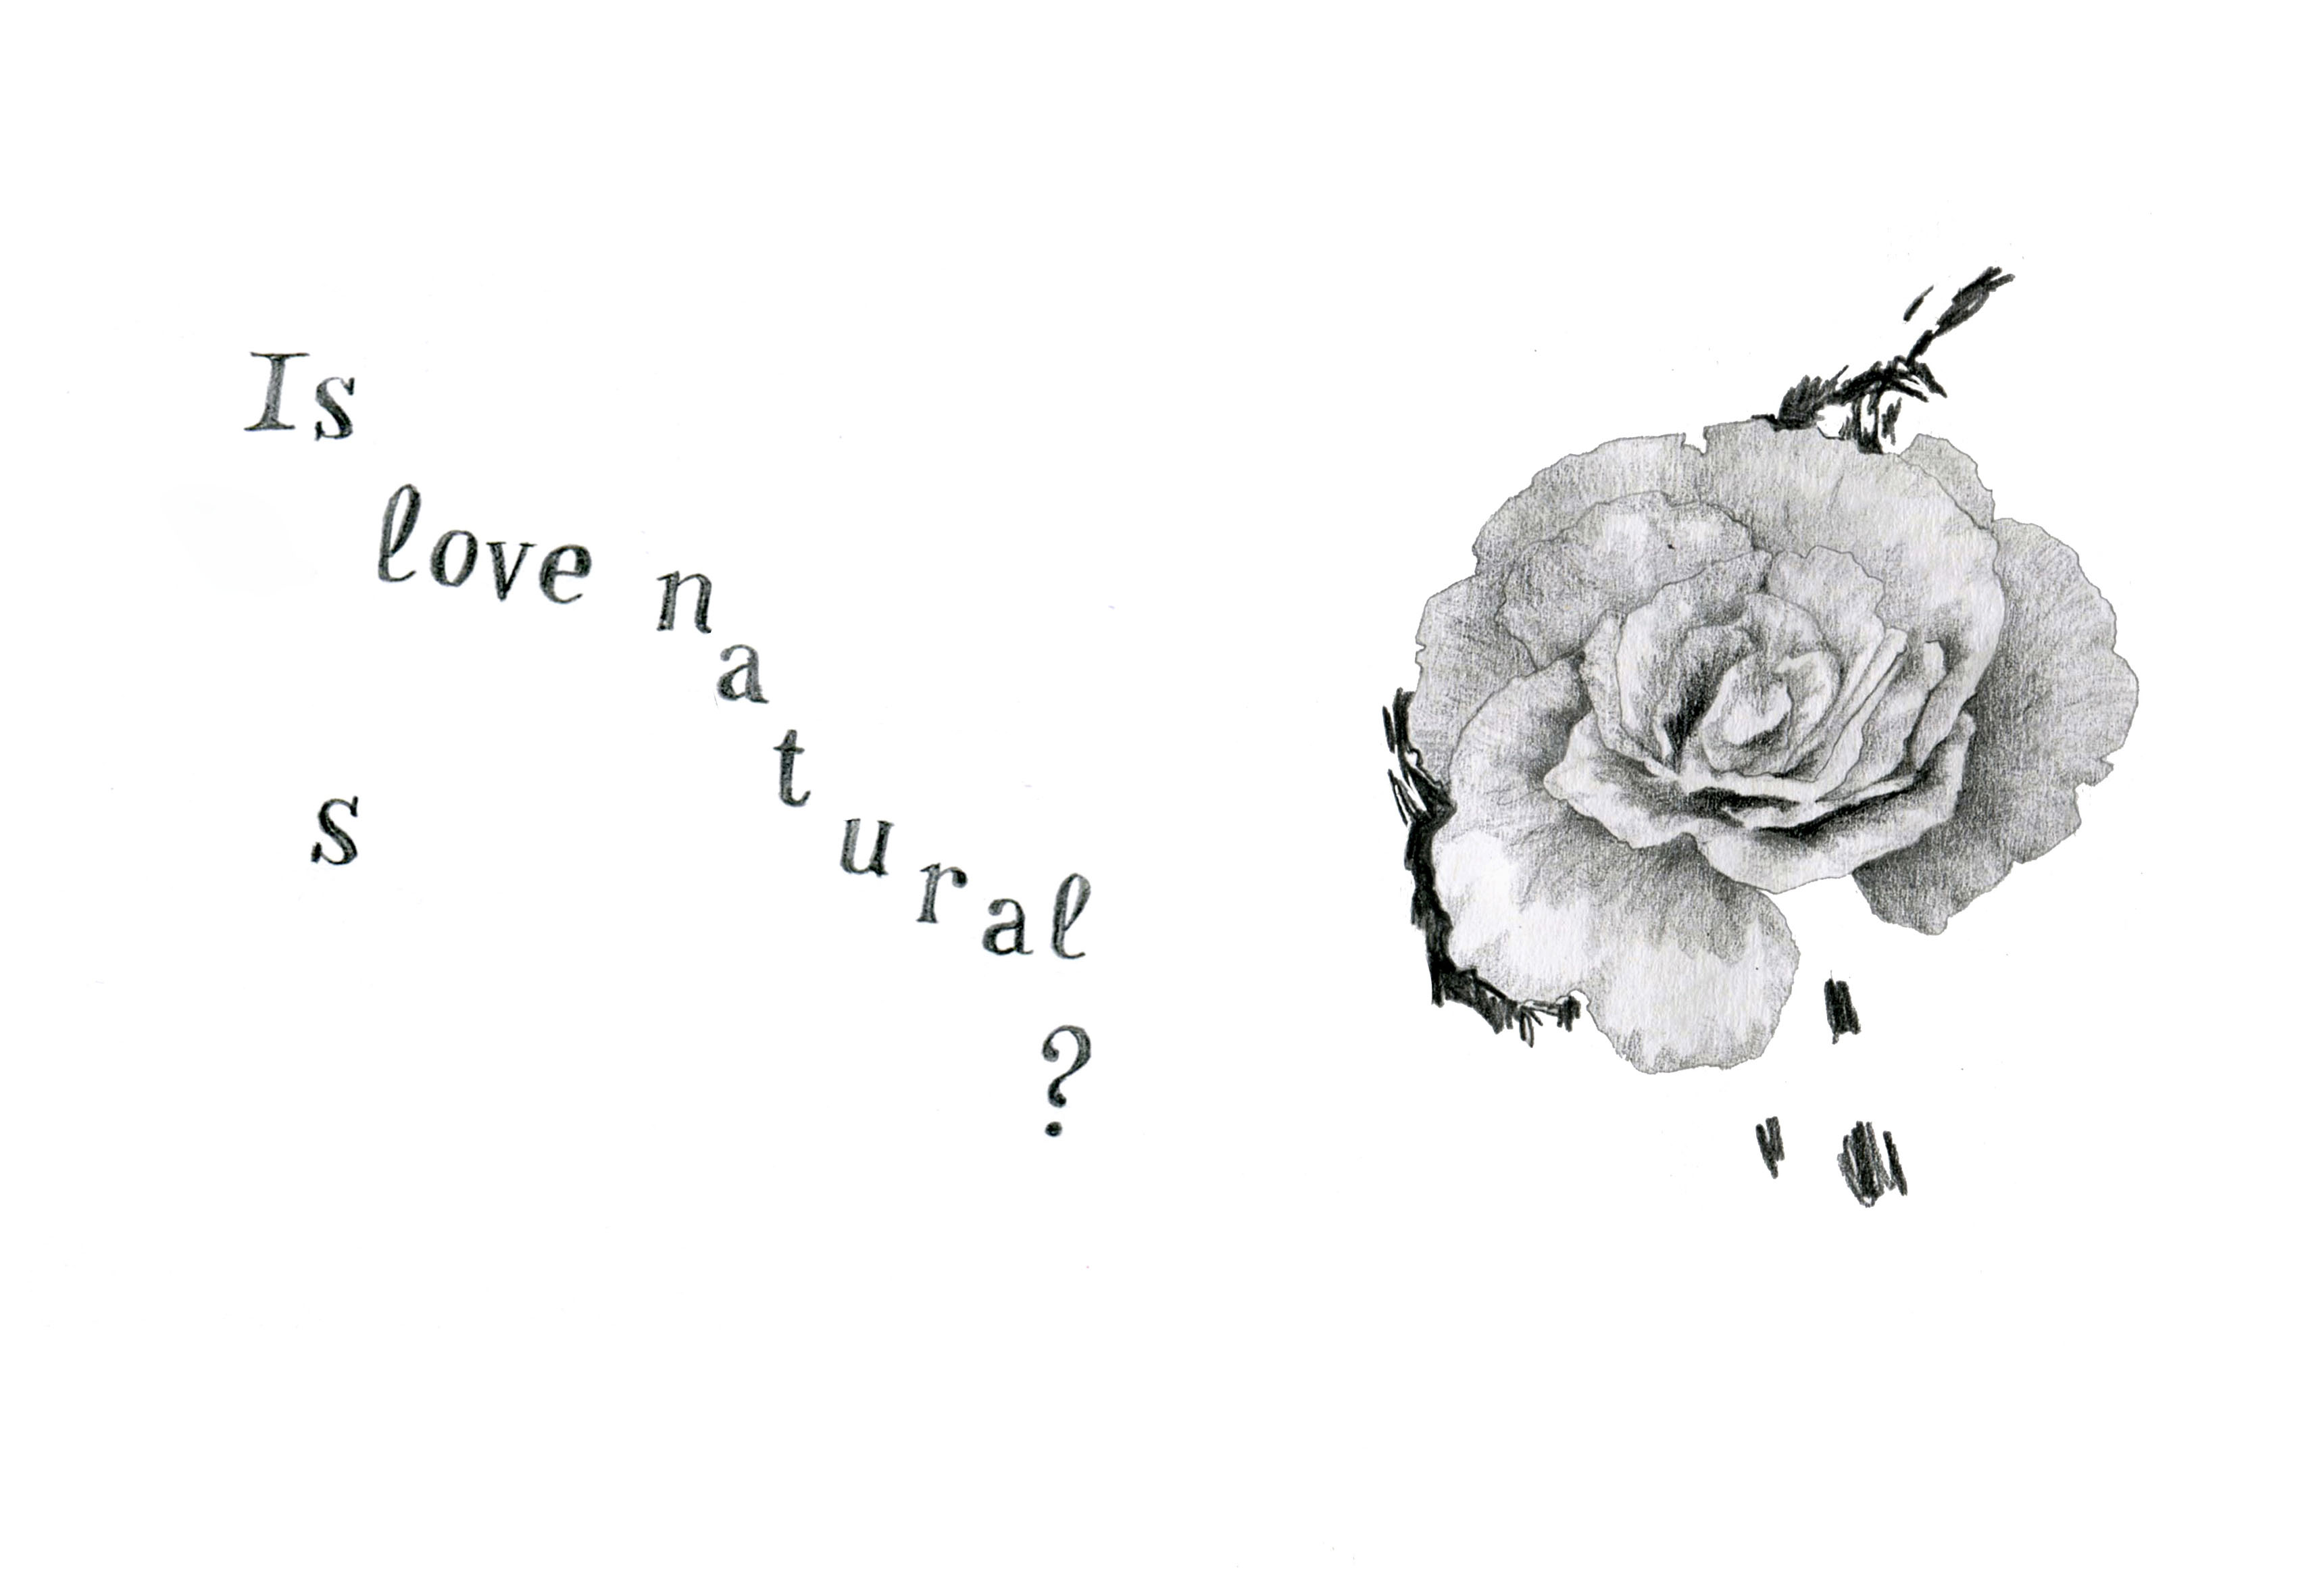 Is
love natural
s
?